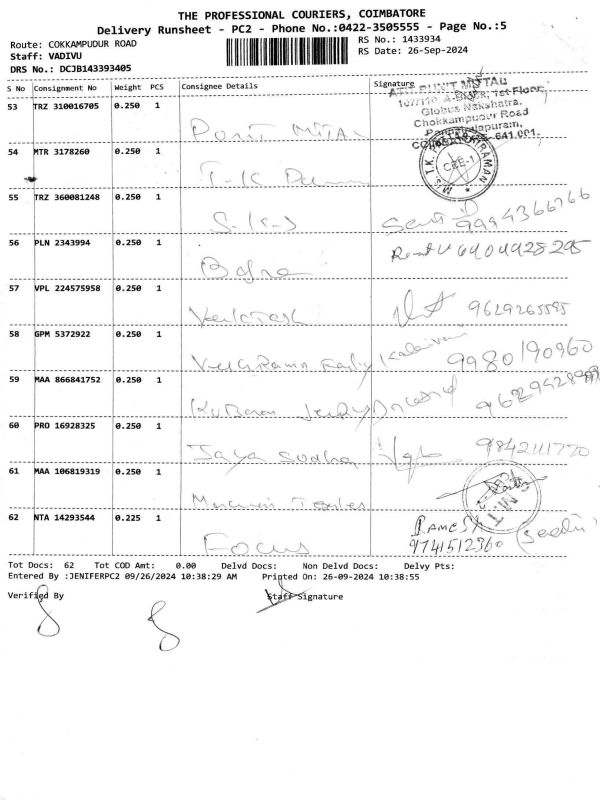 THE PROFESSIONAL COURIERS, COIMBATORE
Delivery Runsheet - PC2 - Phone No.:0422-3505555 - Page No.:5
Route: COKKAMPUDUR ROAD
RS No.: 1433934
Staff: VADIVU
RS Date: 26-Sep-2024
DRS No.: DCJB143393405
S No Consignment No Weight PCS Consignee Details Signature
53 TRZ 310016705 0.250 1
Globus Nakshatra,
Chokkampudur Road
54 MTR 3178260 0.250 1
55 TRZ 360081248 0.250 1 9994366766
56 PLN 2343994 0.250 1 Bafna
57 VPL 224575958 0.250 1 Venkatesh 9629265595
58 GPM 5372922 0.250 1 9980190960
59 MAA 866841752 0.250 1
60 PRO 16928325 0.250 1 Jaya Sudha 9842111770
61 MAA 106819319 0.250 1
62 NTA 14293544 0.225 1 Focus Ramesh
9741512360
Tot Docs: 62 Tot COD Amt: 0.00 Delvd Docs: Non Delvd Docs: Delvy Pts:
Entered By :JENIFERPC2 09/26/2024 10:38:29 AM Printed On: 26-09-2024 10:38:55
Verified By Staff Signature